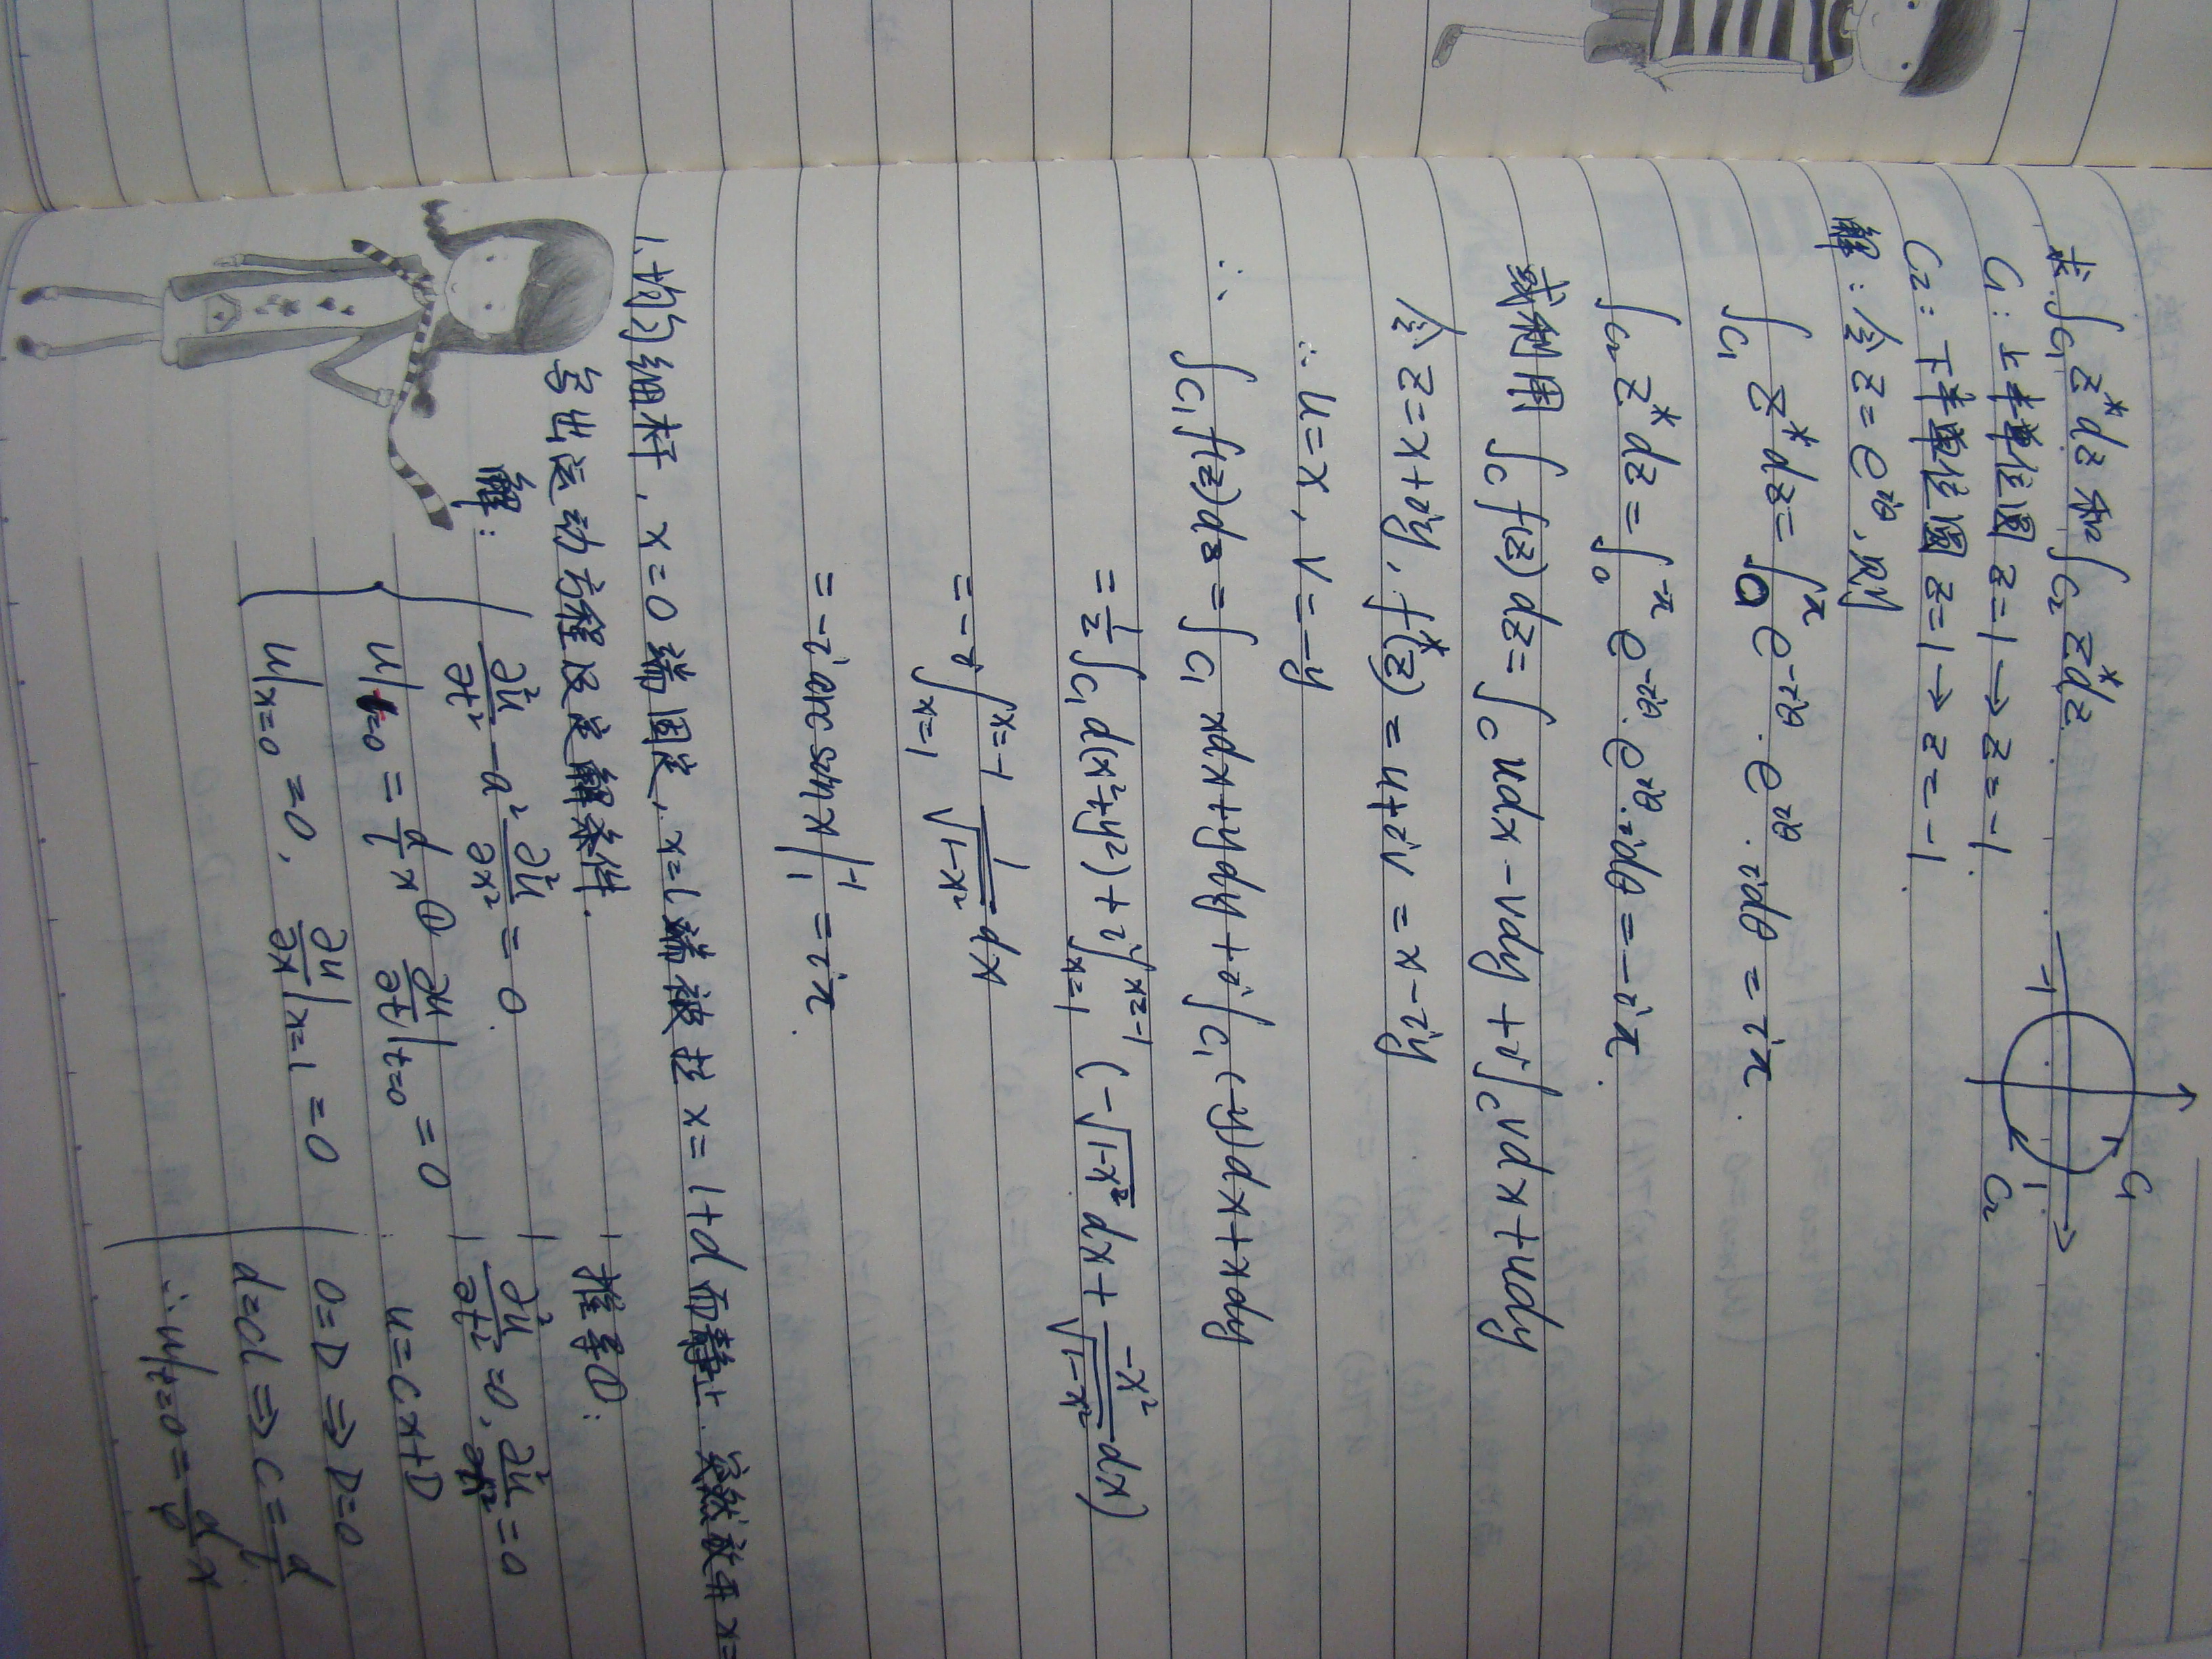 求∫C₁ z*dz 和 ∫C₂ z*dz.
C₁: 上半单位圆 z=1→z=-1
C₂: 下半单位圆 z=1→z=-1.
-1 1 C₁ C₂
解: 令 z=e^{iθ}, 则
∫C₁ z*dz = ∫₀^π e^{-iθ}·e^{iθ}·idθ = iπ.
∫C₂ z*dz = ∫₀^{-π} e^{-iθ}·e^{iθ}·idθ = -iπ.
或利用 ∫c f(z)dz = ∫c udx-vdy + i∫c vdx+udy
令 z=x+iy, f*(z) = u+iv = x-iy
∴ u=x, v=-y
∴ ∫C₁ f(z)dz = ∫C₁ xdx+ydy + i∫C₁ (-y)dx+xdy
= 1/2 ∫C₁ d(x²+y²) + i∫_{x=1}^{x=-1} (-√(1-x²) dx + -x²/√(1-x²) dx)
= -i ∫_{x=1}^{x=-1} 1/√(1-x²) dx
= -i arcsin x |₁^{-1} = iπ.
1. 均匀细杆, x=0 端固定, x=l 端被拉 x=l+d 而静止. 突然放开 x=
写出运动方程及定解条件.
解: ∂²u/∂t² - a² ∂²u/∂x² = 0
u|t=0 = d/l x ① ∂u/∂t|t=0 = 0
u|x=0 = 0, ∂u/∂x|x=l = 0
推导①:
∂²u/∂t² = 0, ∂²u/∂x² = 0
u = cx+D
0=D ⇒ D=0
d=cl ⇒ c=d/l
∴ u|t=0 = d/l x